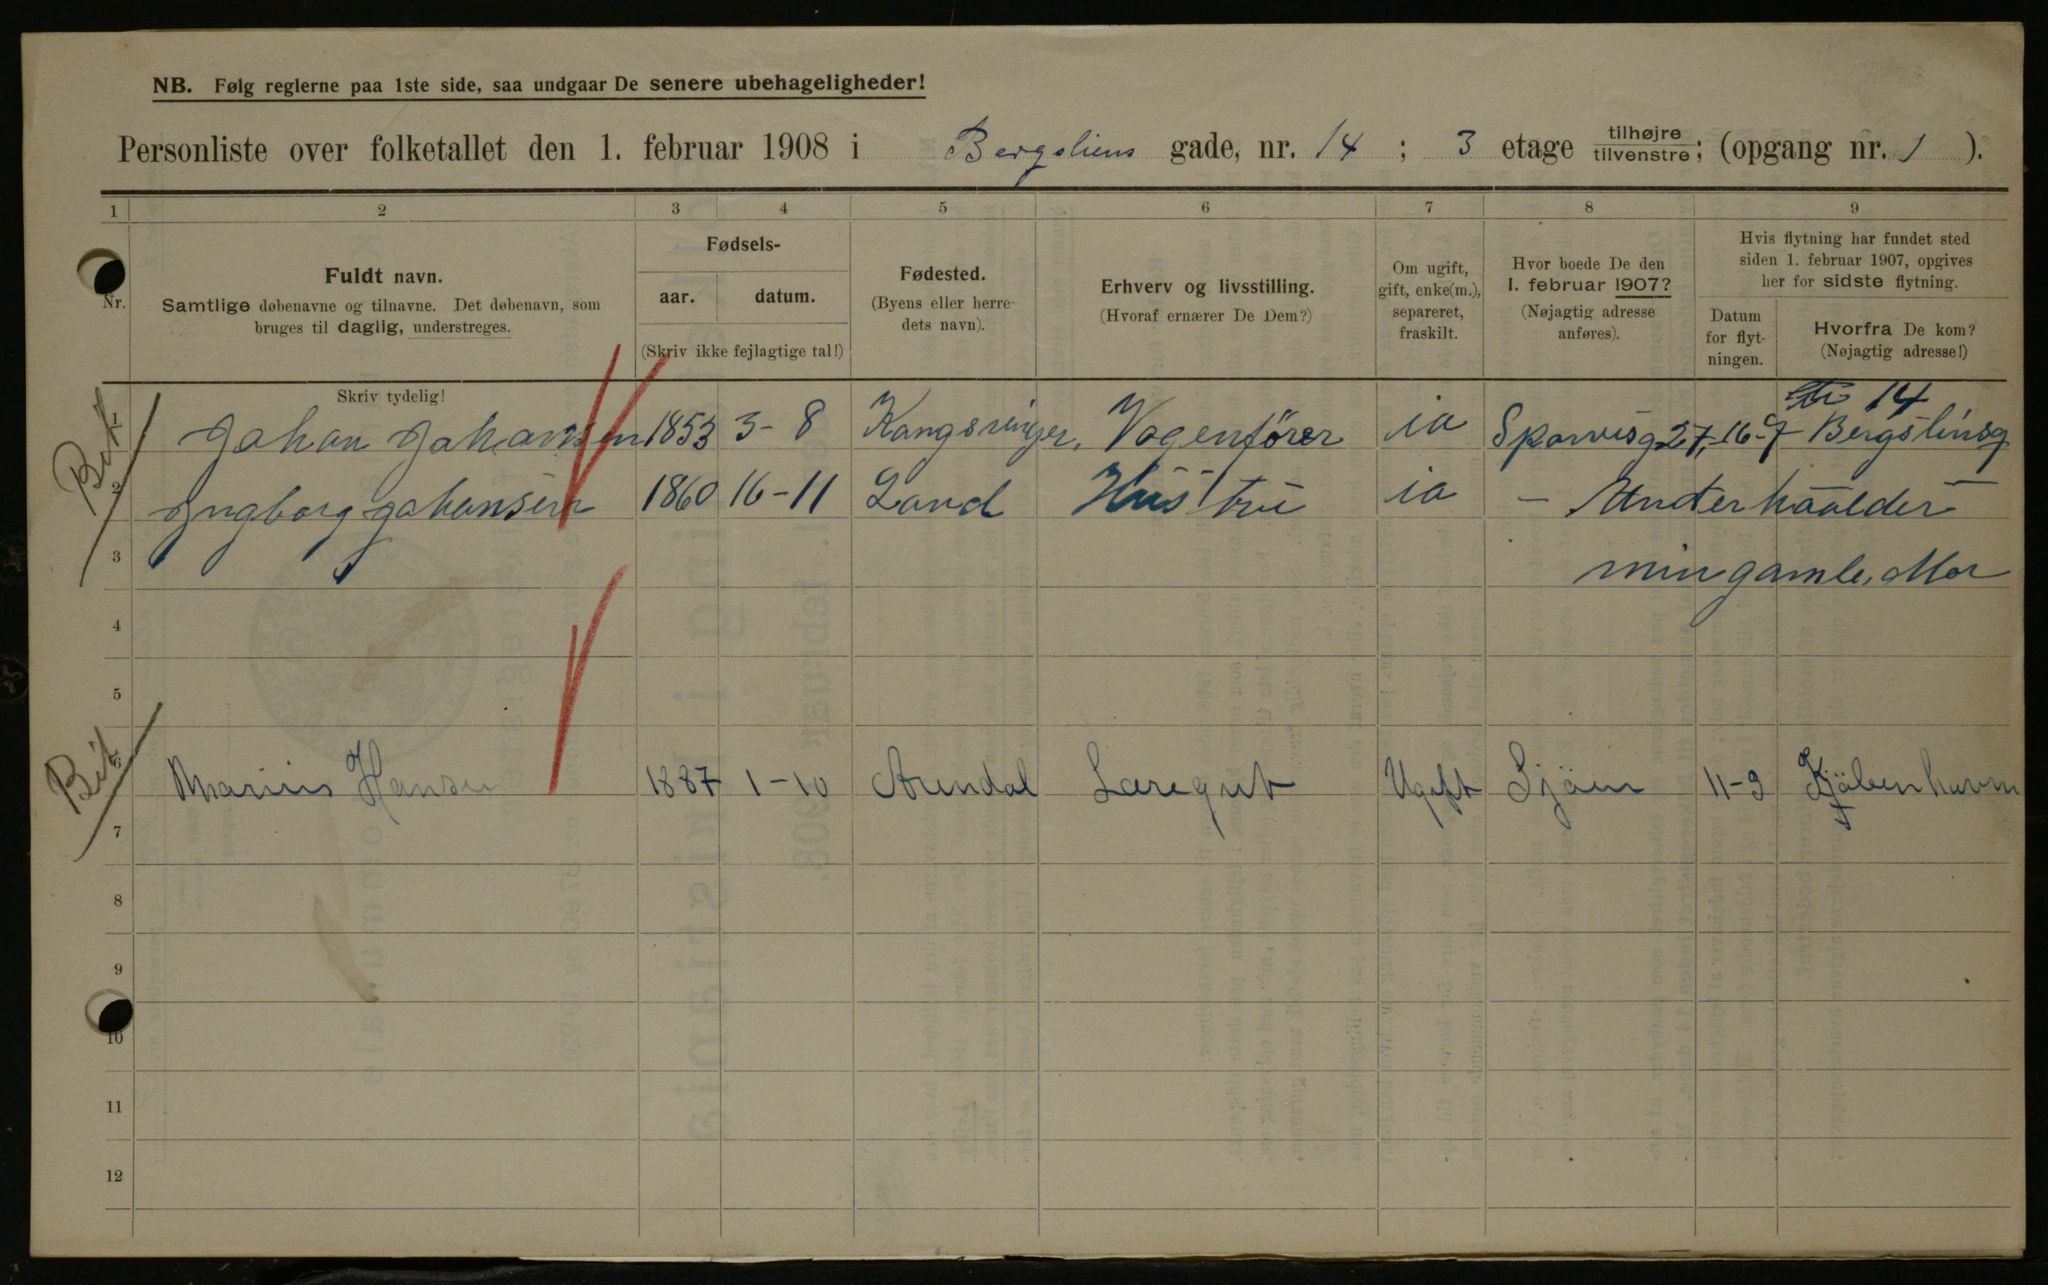 NB. Følg reglerne paa 1ste side, saa undgaar De senere ubehageligheder!
Personliste over folketallet den 1. februar 1908 i Bergsliens gade, nr. 14 ; 3 etage tilhøjre tilvenstre; (opgang nr. 1 ).
1 2 3 4 5 6 7 8 9
Nr.
Fuldt navn.
Samtlige døbenavne og tilnavne. Det døbenavn, som
bruges til daglig, understreges.
Fødsels-
aar. datum.
(Skriv ikke fejlagtige tal!)
Fødested.
(Byens eller herre-
dets navn).
Erhverv og livsstilling.
(Hvoraf ernærer De Dem?)
Om ugift,
gift, enke(m.),
separeret,
fraskilt.
Hvor boede De den
1. februar 1907?
(Nøjagtig adresse
anføres).
Hvis flytning har fundet sted
siden 1. februar 1907, opgives
her for sidste flytning.
Datum
for flyt-
ningen.
Hvorfra De kom?
(Nøjagtig adresse!)
Skriv tydelig!
14
1 Johan Johansen 1853 3-8 Kongsvinger, Vogenfører ia Sporvisg 27, 16-9 Bergslinsg
Bit
2 Ingborg Johansen 1860 16-11 Land Hüs trü ia — Underhaalder
3 min gamle, Mor
4
5
Bit
6 Marius Hansen 1887 1-10 Arendal Læregut Ugift Sjöen 11-9 Kjöbenhavn
7
8
9
10
11
12